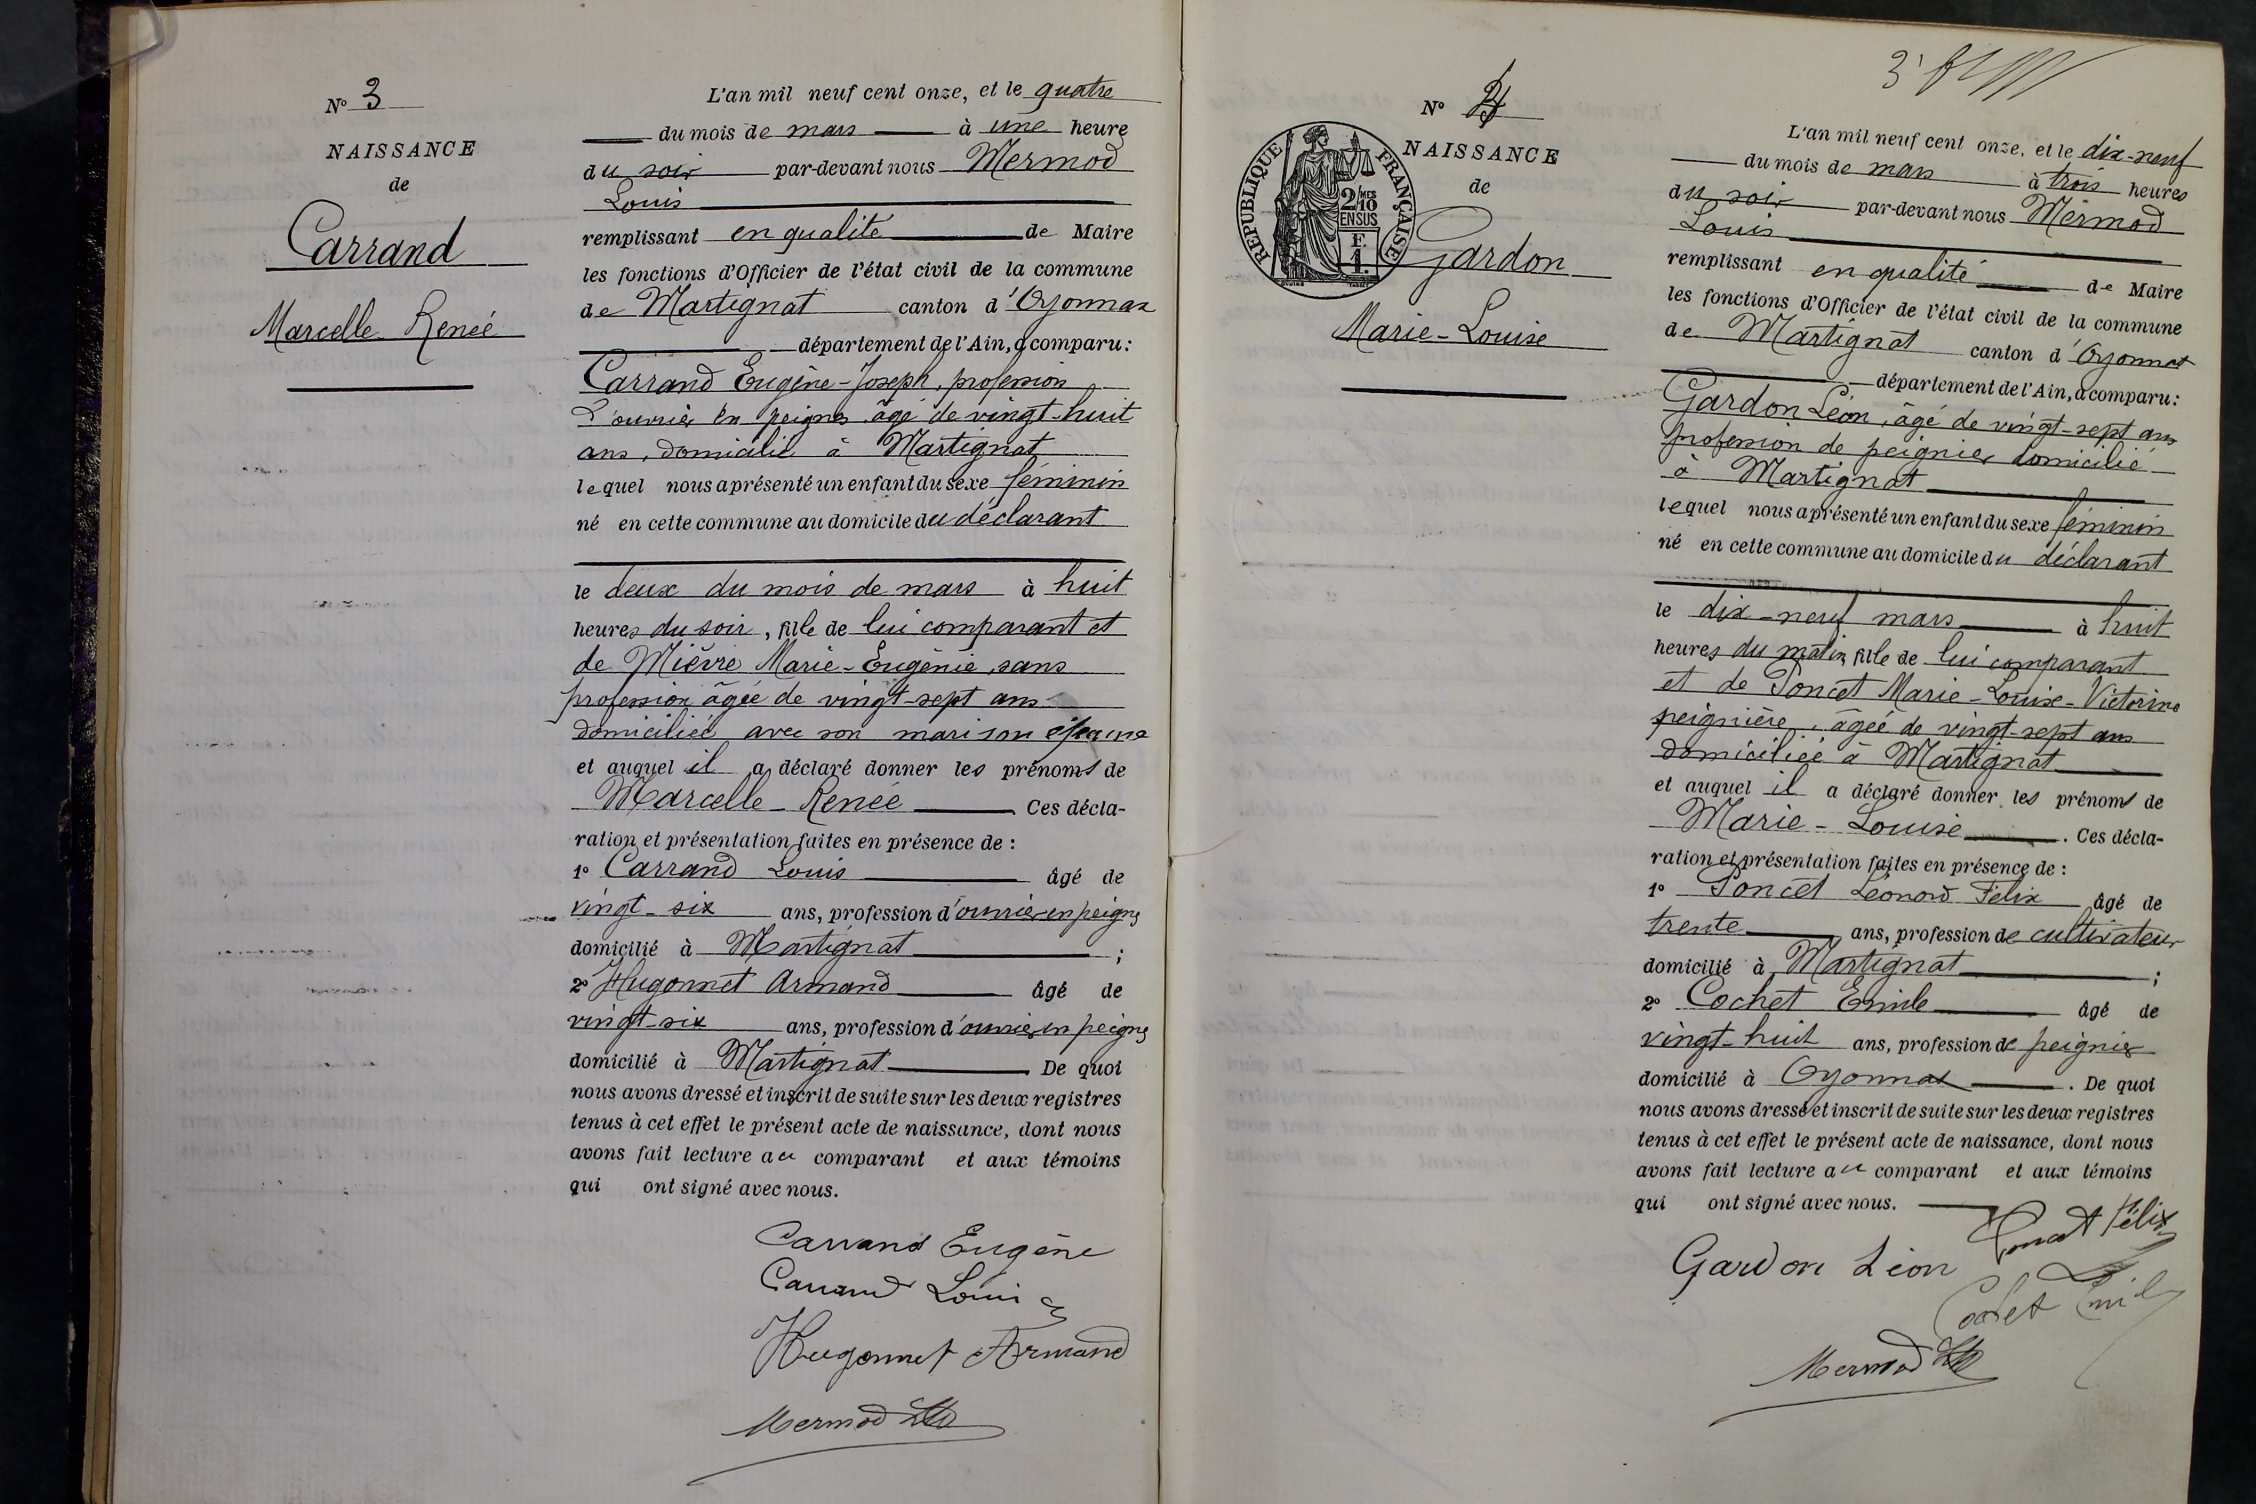 N° 3
NAISSANCE
de
Carrand
Marcelle Renée
L'an mil neuf cent onze, et le quatre
du mois de mars à une heure
du soir par-devant nous Mermod
Louis
remplissant en qualité de Maire
les fonctions d'Officier de l'état civil de la commune
de Martignat canton d'Oyonnax
département de l'Ain, a comparu:
Carrand Eugène-Joseph, profession
d'ouvrier en peignes âgé de vingt-huit
ans, domicilié à Martignat
lequel nous a présenté un enfant du sexe féminin
né en cette commune au domicile du déclarant
le deux du mois de mars à huit
heures du soir, fille de lui comparant et
de Mièvre Marie-Eugénie, sans
profession âgée de vingt-sept ans
domiciliée avec son mari son épouse
et auquel il a déclaré donner les prénoms de
Marcelle Renée Ces décla-
ration et présentation faites en présence de :
1° Carrand Louis âgé de
vingt-six ans, profession d'ouvrier en peignes
domicilié à Martignat ;
2° Hugonnet Armand âgé de
vingt-six ans, profession d'ouvrier en peignes
domicilié à Martignat De quoi
nous avons dressé et inscrit de suite sur les deux registres
tenus à cet effet le présent acte de naissance, dont nous
avons fait lecture au comparant et aux témoins
qui ont signé avec nous.
Carrand Eugène
Carrand Louis
Hugonnet Armand
Mermod
N° 4
RÉPUBLIQUE FRANÇAISE
2/10 MES
EN SUS
F.
1.
NAISSANCE
de
Gardon
Marie-Louise
L'an mil neuf cent onze, et le dix-neuf
du mois de mars à trois heures
du soir par-devant nous Mermod
Louis
remplissant en qualité de Maire
les fonctions d'Officier de l'état civil de la commune
de Martignat canton d'Oyonnax
département de l'Ain, a comparu:
Gardon Léon, âgé de vingt-sept ans
profession de peignier domicilié
à Martignat
lequel nous a présenté un enfant du sexe féminin
né en cette commune au domicile du déclarant
le dix-neuf mars à huit
heures du matin, fille de lui comparant
et de Poncet Marie-Louise-Victorine
peignière, âgée de vingt-sept ans
domiciliée à Martignat
et auquel il a déclaré donner les prénoms de
Marie-Louise. Ces décla-
ration et présentation faites en présence de :
1° Poncet Léonard Félix âgé de
trente ans, profession de cultivateur
domicilié à Martignat ;
2° Cochet Emile âgé de
vingt-huit ans, profession de peignier
domicilié à Oyonnax. De quoi
nous avons dressé et inscrit de suite sur les deux registres
tenus à cet effet le présent acte de naissance, dont nous
avons fait lecture au comparant et aux témoins
qui ont signé avec nous.
Poncet Félix
Gardon Léon
Cochet Emile
Mermod